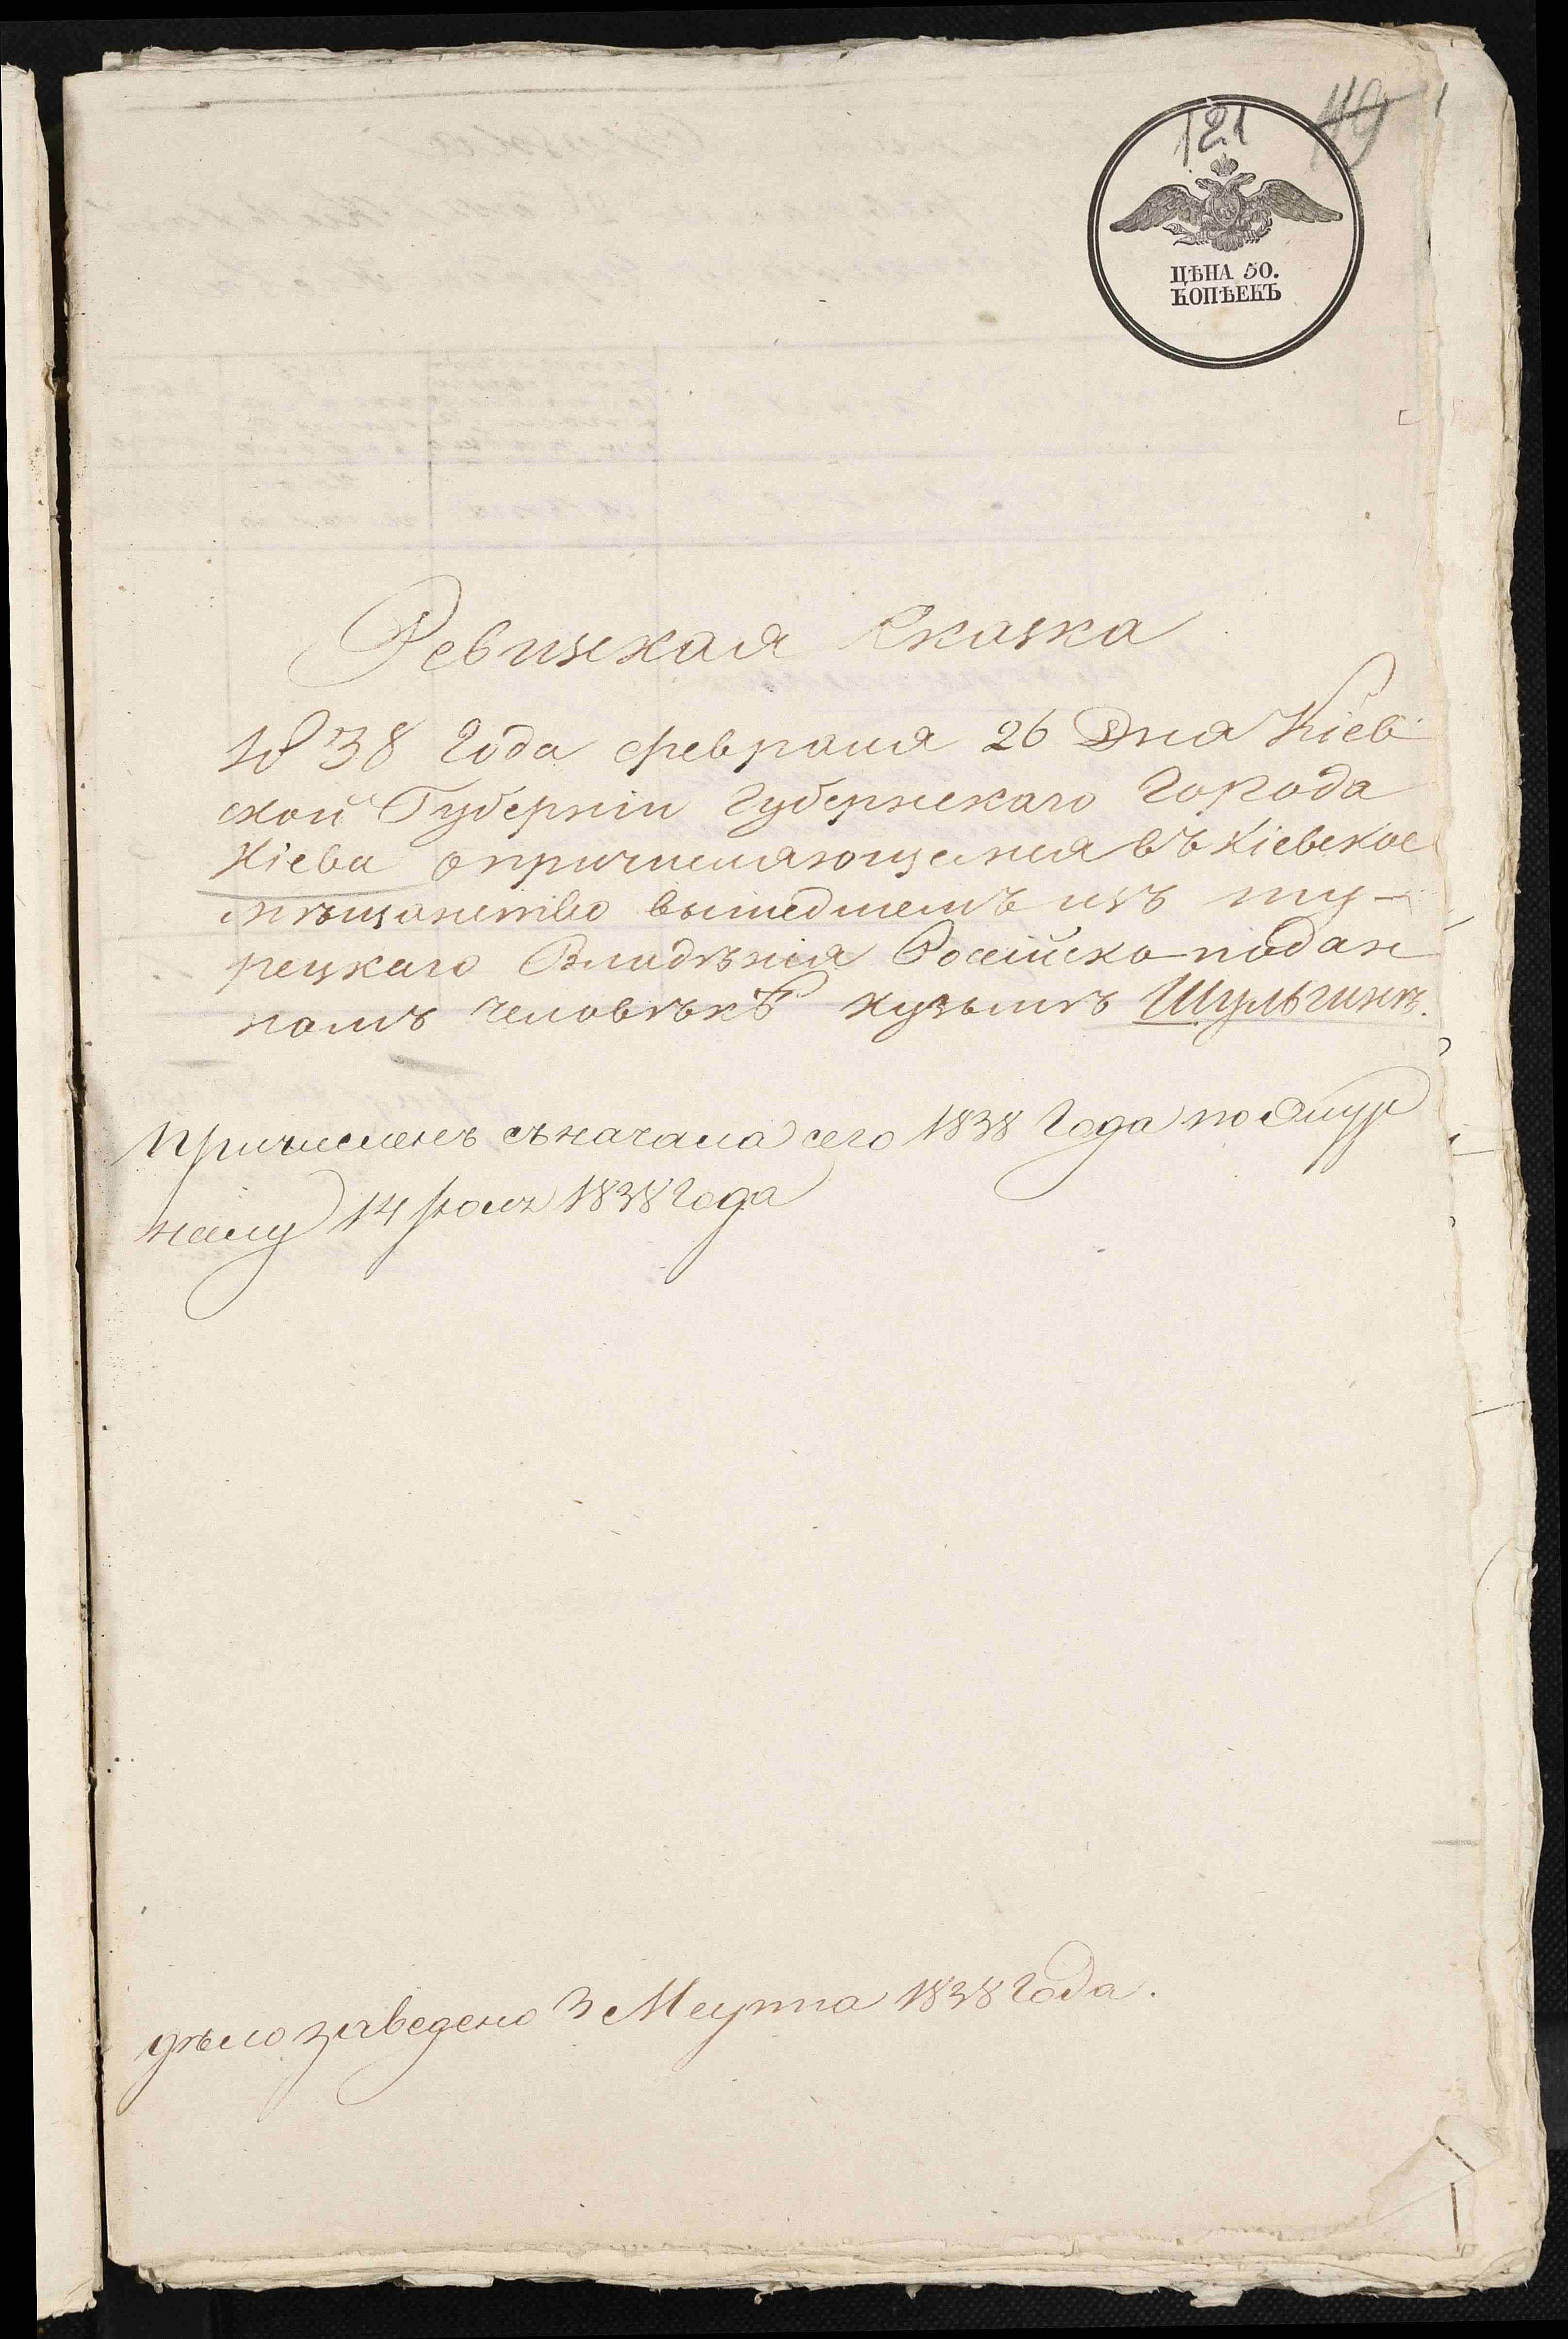 121
119
ЦѢНА 50.
КОПѢЕКЪ
Ревизкая Сказка
1838 Года февраля 26 Дня Кіев
ской Губерніи Губернскаго Города
Кіева о причисляющемся въ Кіевское
мѣщанство вышедшемъ изъ ту-
рецкаго Владѣнія Россійско-подан
номъ человѣкѣ Кузьмѣ Шульгинѣ.
Причисленъ съ начала сего 1838 Года по Жур
налу 14 1838 Года
дѣло заведено 3 Марта 1838 Года.